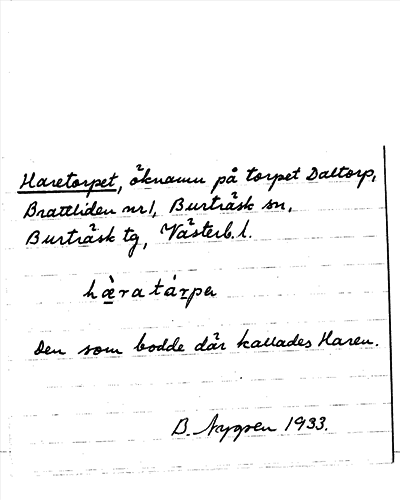 Haretorpet, öknamn på torpet Daltorp,
Brattliden nr 1, Burträsk sn,
Burträsk tg, Västerb. l.
hæ̀ratárpa
Den som bodde där kallades Haren.
B. Nygren 1933.